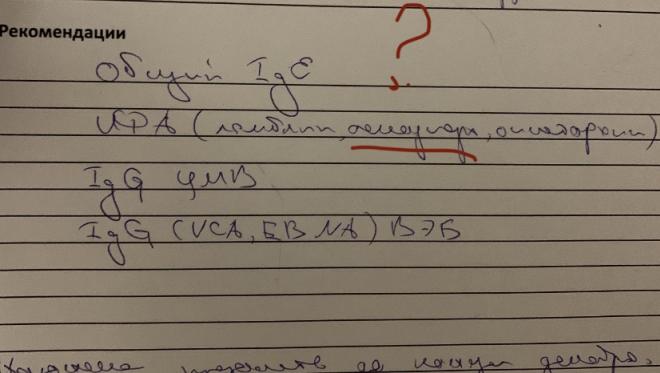 Рекомендации
?
Общий IgE
ИФА (лямблии, аскариды, описторхии)
IgG ЦМВ
IgG (VCA, EBNA) ВЭБ
до конца декабря.